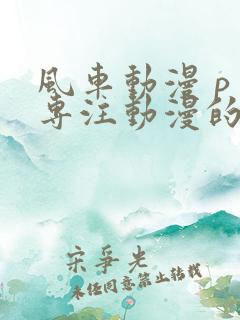 風車動漫 p
専注動漫的
宋爭先
未经同意禁止转载